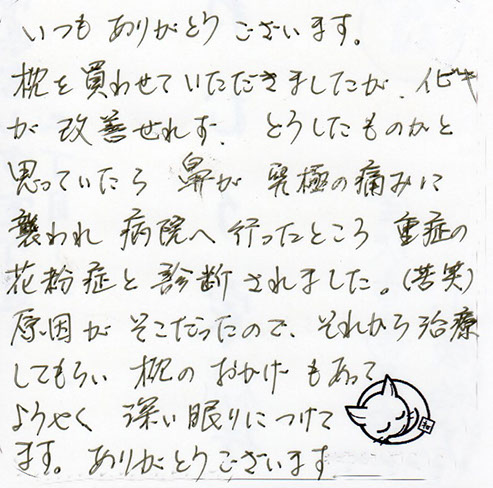 いつもありがとうございます。
枕を買わせていただきましたが、イビキ
が改善せれず、とうしたものかと
思っていたら鼻が究極の痛みに
襲われ病院へ行ったところ重症の
花粉症と診断されました。(苦笑)
原因がそこだったので、それから治療
してもらい枕のおかげもあって
ようやく深い眠りにつけて
ます。ありがとうございます